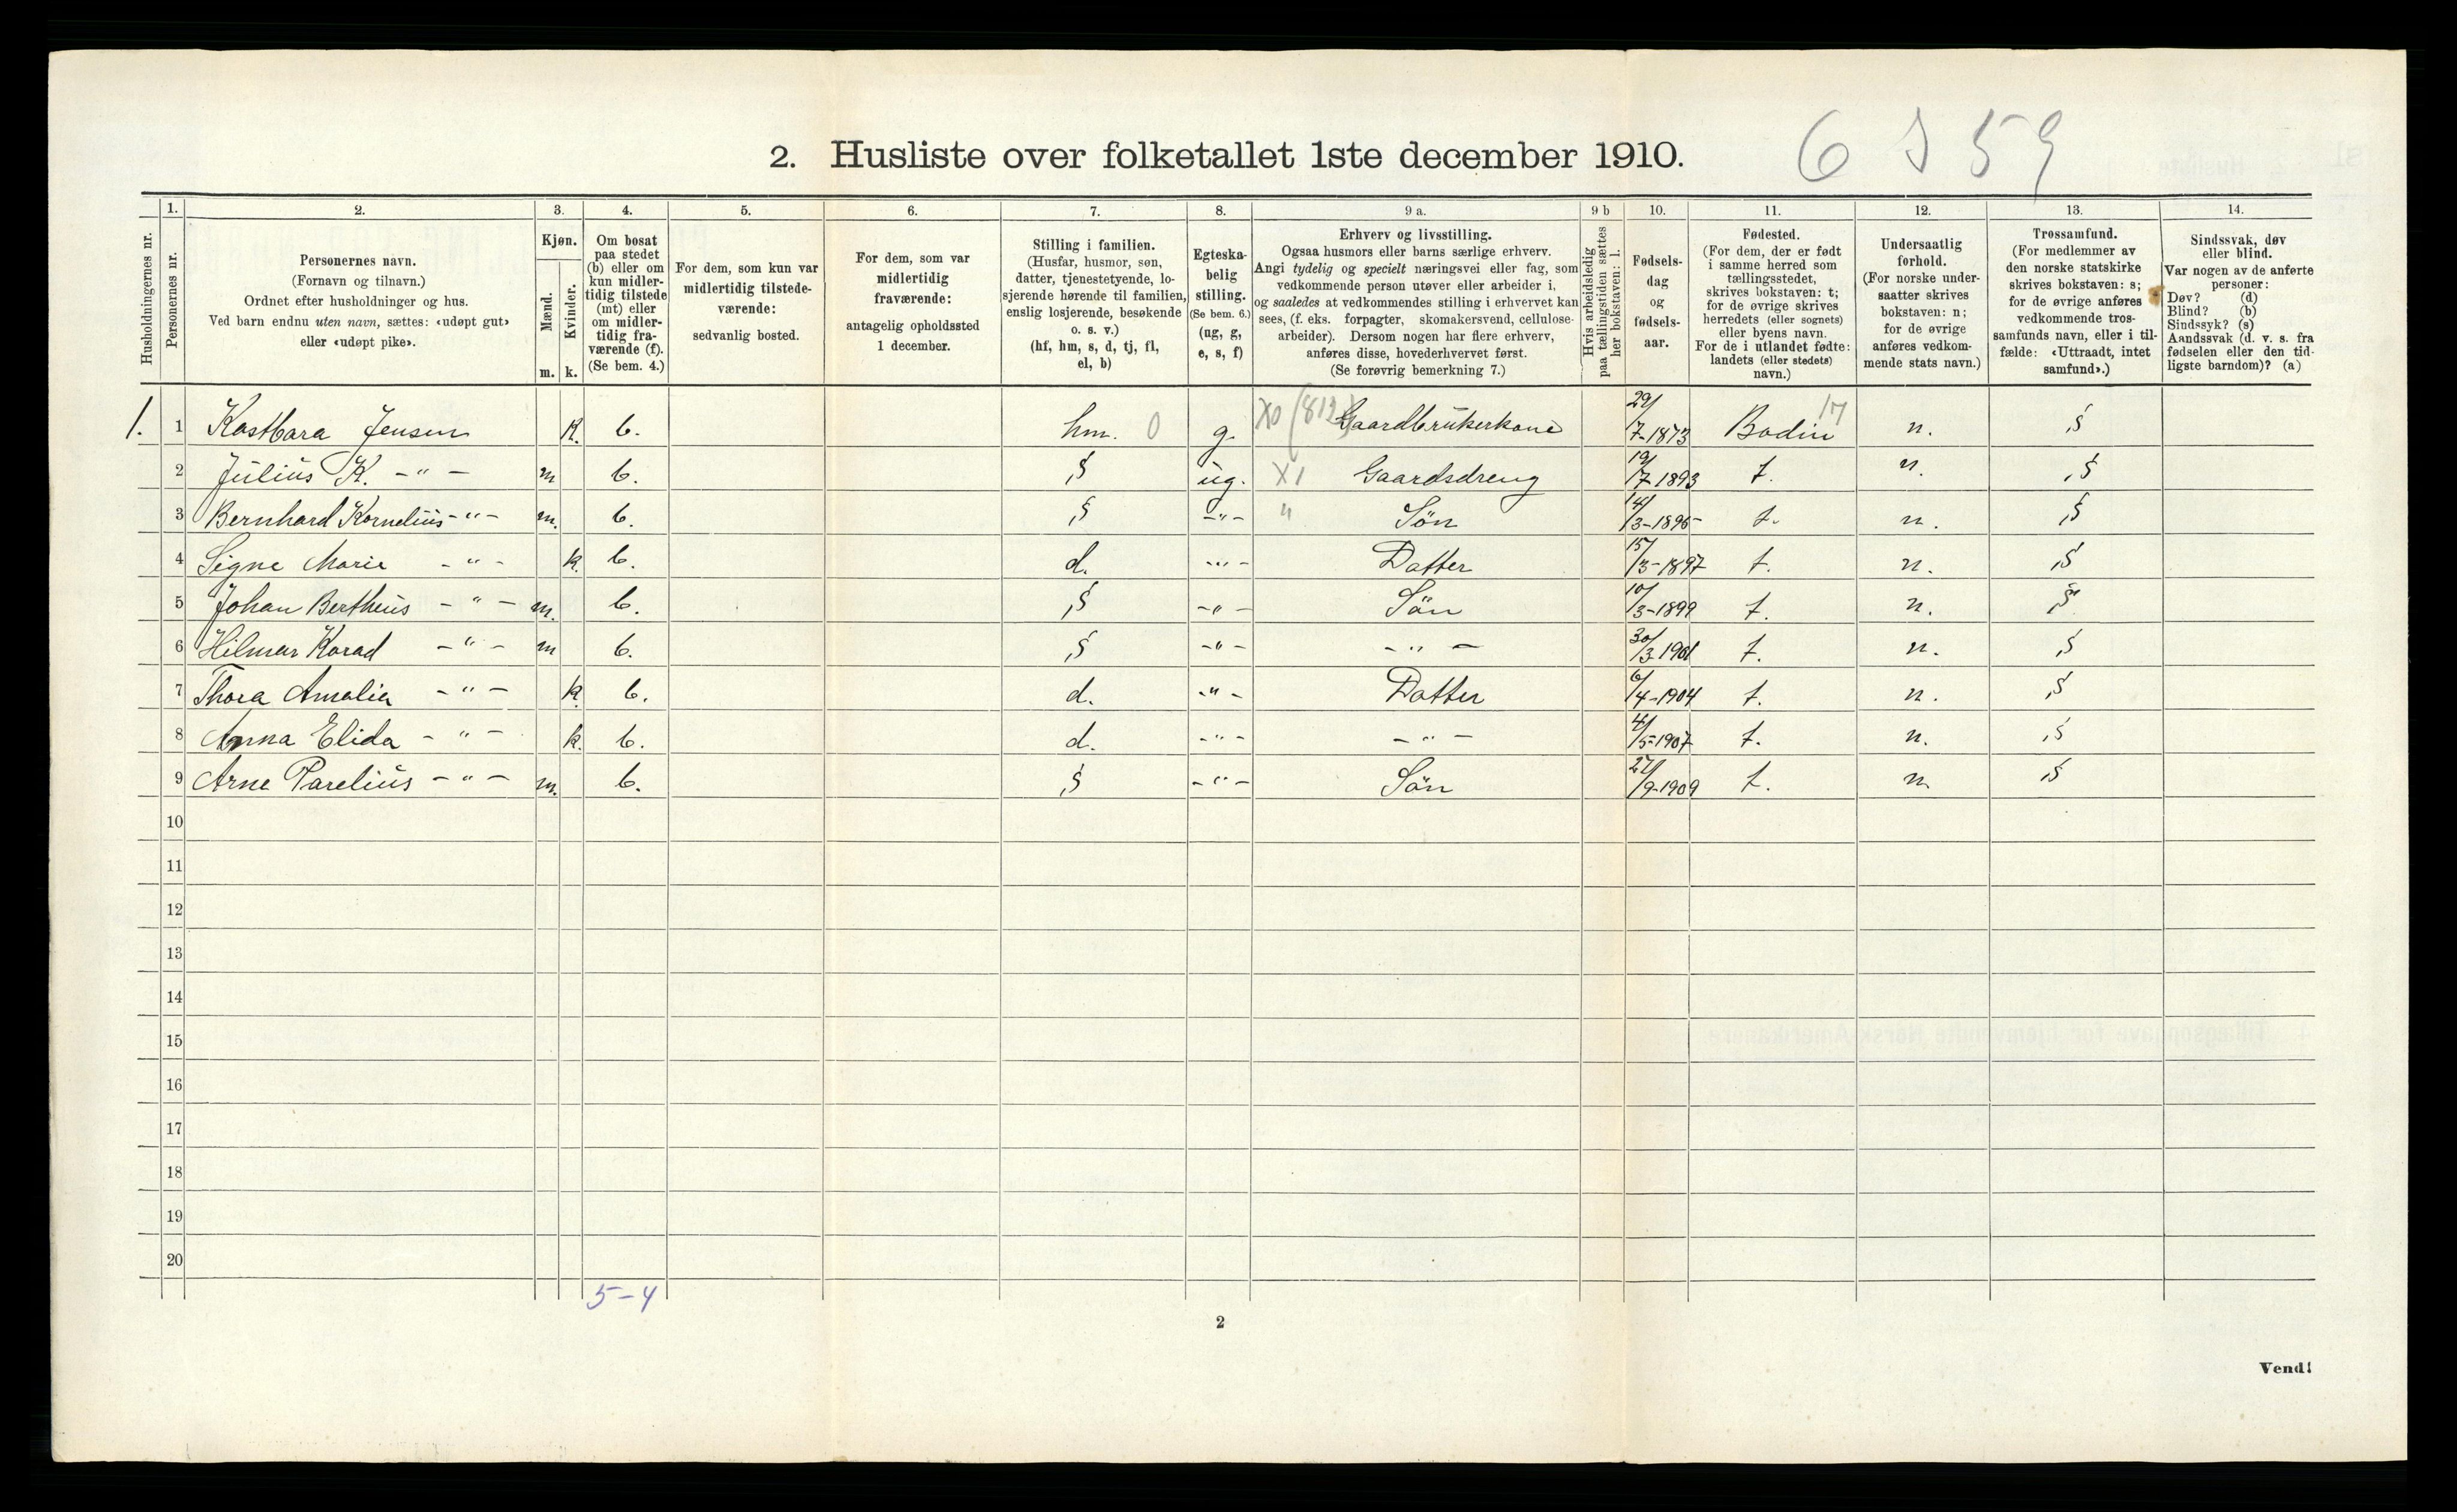 2. Husliste over folketallet 1ste december 1910.
6 5 9
Husholdningernes nr.
1. Personernes nr.
2. Personernes navn. (Fornavn og tilnavn.) Ordnet efter husholdninger og hus. Ved barn endnu uten navn, sættes: «udøpt gut» eller «udøpt pike».
3. Kjøn. Mænd. m. Kvinder. k.
4. Om bosat paa stedet (b) eller om kun midlertidig tilstede (mt) eller om midlertidig fraværende (f). (Se bem. 4.)
5. For dem, som kun var midlertidig tilstedeværende: sedvanlig bosted.
6. For dem, som var midlertidig fraværende: antagelig opholdssted 1 december.
7. Stilling i familien. (Husfar, husmor, søn, datter, tjenestetyende, losjerende hørende til familien, enslig losjerende, besøkende o. s. v.) (hf, hm, s, d, tj, fl, el, b)
8. Egteskabelig stilling. (Se bem. 6.) (ug, g, e, s, f)
9 a. Erhverv og livsstilling. Ogsaa husmors eller barns særlige erhverv. Angi tydelig og specielt næringsvei eller fag, som vedkommende person utøver eller arbeider i, og saaledes at vedkommendes stilling i erhvervet kan sees, (f. eks. forpagter, skomakersvend, cellulosearbeider). Dersom nogen har flere erhverv, anføres disse, hovederhvervet først. (Se forøvrig bemerkning 7.)
9 b Hvis arbeidsledig paa tællingstiden sættes her bokstaven: l.
10. Fødselsdag og fødselsaar.
11. Fødested. (For dem, der er født i samme herred som tællingsstedet, skrives bokstaven: t; for de øvrige skrives herredets (eller sognets) eller byens navn. For de i utlandet fødte: landets (eller stedets) navn.)
12. Undersaatlig forhold. (For norske undersaatter skrives bokstaven: n; for de øvrige anføres vedkommende stats navn.)
13. Trossamfund. (For medlemmer av den norske statskirke skrives bokstaven: s; for de øvrige anføres vedkommende trossamfunds navn, eller i tilfælde: «Uttraadt, intet samfund».)
14. Sindssvak, døv eller blind. Var nogen av de anførte personer: Døv? (d) Blind? (b) Sindssyk? (s) Aandssvak (d. v. s. fra fødselen eller den tidligste barndom)? (a)
1. 1 Kastbara Jensen k. b. hm. 0 g. X0 (812) Gaardbrukerkone 29/7-1873 Bodin 17 n. s
2 Julius K. -"- m b. s ug. X1 Gaardsdreng 19/7-1893 t. n. s
3 Bernhard Kornelius -"- m. b. s -"- " Sön 14/3-1895 t. n. s
4 Signe Marie -"- k. b. d. -"- Datter 15/3-1897 t. n. s
5 Johan Bertheus -"- m. b. s -"- Sön 10/3-1899 t. n. s
6 Hilmar Korad -"- m b. s -"- -"- 30/3-1901 t. n. s
7 Thora Amalia -"- k. b. d. -"- Datter 6/4-1904 t. n. s
8 Anna Elida -"- k. b. d. -"- -"- 4/5-1907 t. n. s
9 Arne Parelius -"- m. b. s -"- Sön 27/9-1909 t. n. s
10
11
12
13
14
15
16
17
18
19
20
5-4
2
Vend!